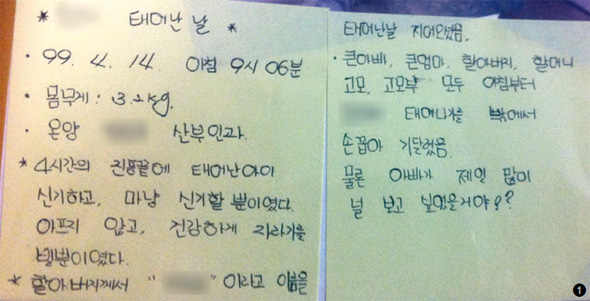 * 태어난 날 *
· 99. 4. 14. 아침 9시 06분
· 몸무게 : 3.2kg.
· 온양 산부인과.
* 4시간의 진통끝에 태어난아이
신기하고, 마냥 신기할 뿐이였다.
아프지 않고, 건강하게 자라기를
빌뿐이였다.
* 할아버지께서 " " 이라고 이름을
태어난날 지어오셨음.
· 큰아빠, 큰엄마, 할아버지, 할머니
고모, 고모부 모두 아침부터
태어나기를 밖에서
손꼽아 기달렸음.
물론 아빠가 제일 많이
널 보고 싶었을거야!?
1